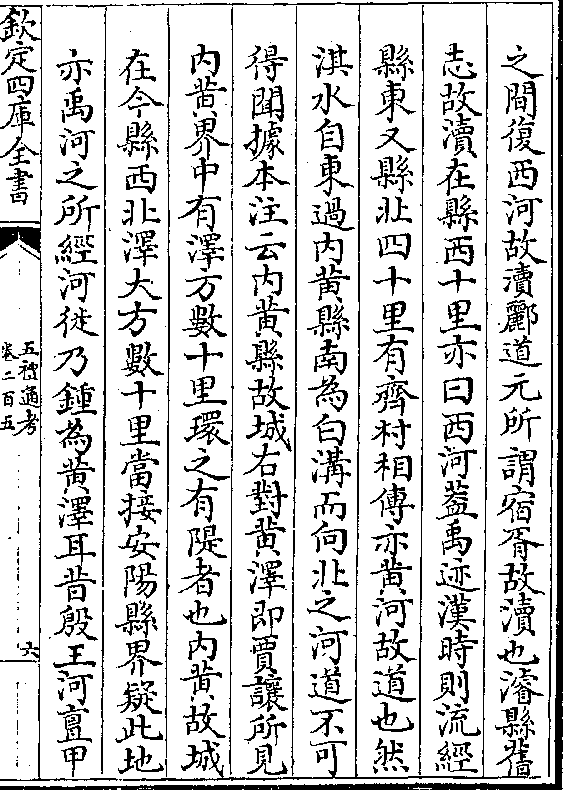 之間復西河故瀆酈道元所謂宿胥故瀆也濬縣舊
志故瀆在縣西十里亦曰西河葢禹迹漢時則流經
縣東又縣北四十里有齊村相傳亦黄河故道也然
淇水自東過内黄縣南為白溝而向北之河道不可
得聞據本注云内黄縣故城右對黄澤即賈讓所見
内黄界中有澤方數十里環之有隄者也内黄故城
在今縣西北澤大方數十里當接安陽縣界疑此地
亦禹河之所經河徙乃鍾為黄澤耳昔殷王河亶甲
欽定四庫全書
五禮通考
卷二百五
六